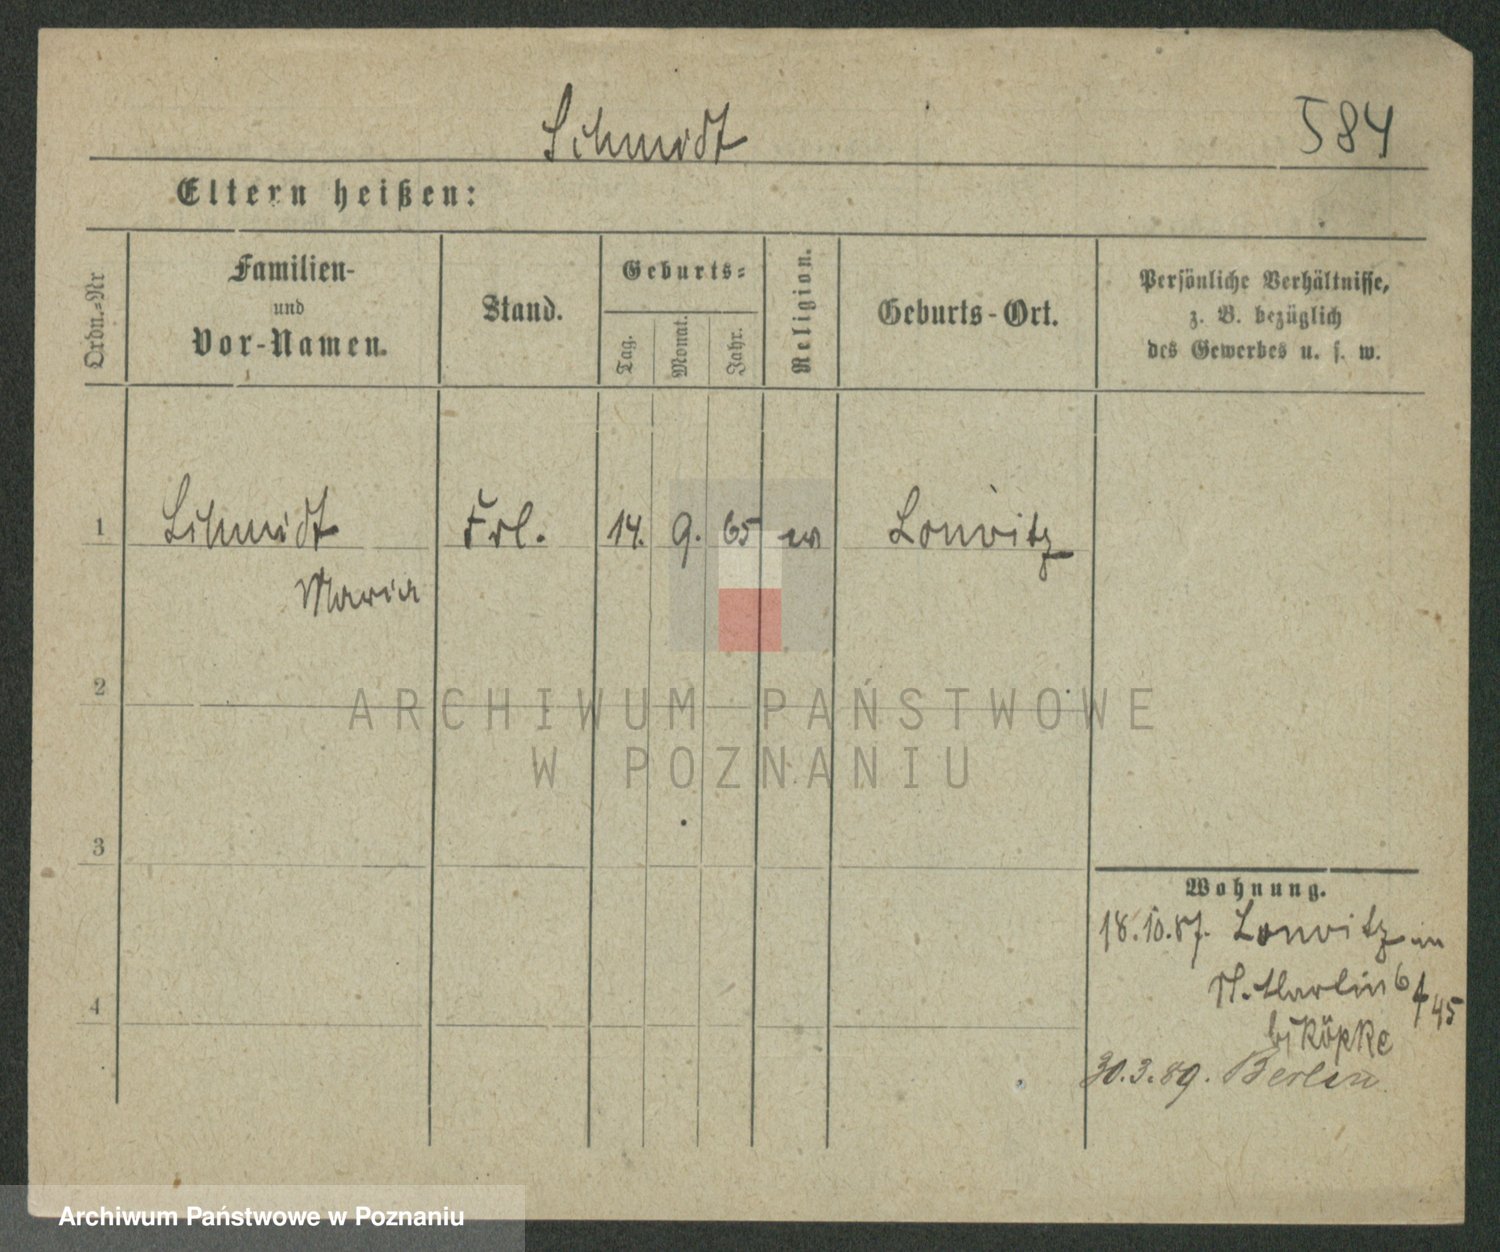 Schmidt 584
Eltern heißen:
Ordn.-Nr
Familien-
und
Vor-Namen.
Stand.
Geburts-
Tag. Monat. Jahr.
Religion.
Geburts-Ort.
Persönliche Verhältnisse,
z. B. bezüglich
des Gewerbes u. s. w.
1 Schmidt Frl. 14. 9. 65 ev Lonvitz
Maria
2
ARCHIWUM PAŃSTWOWE
W POZNANIU
3
Wohnung.
18.10.87. Lonvitz in
St. Martin 6
45
4
bj Köpke
30.3.89. Berlin
Archiwum Państwowe w Poznaniu